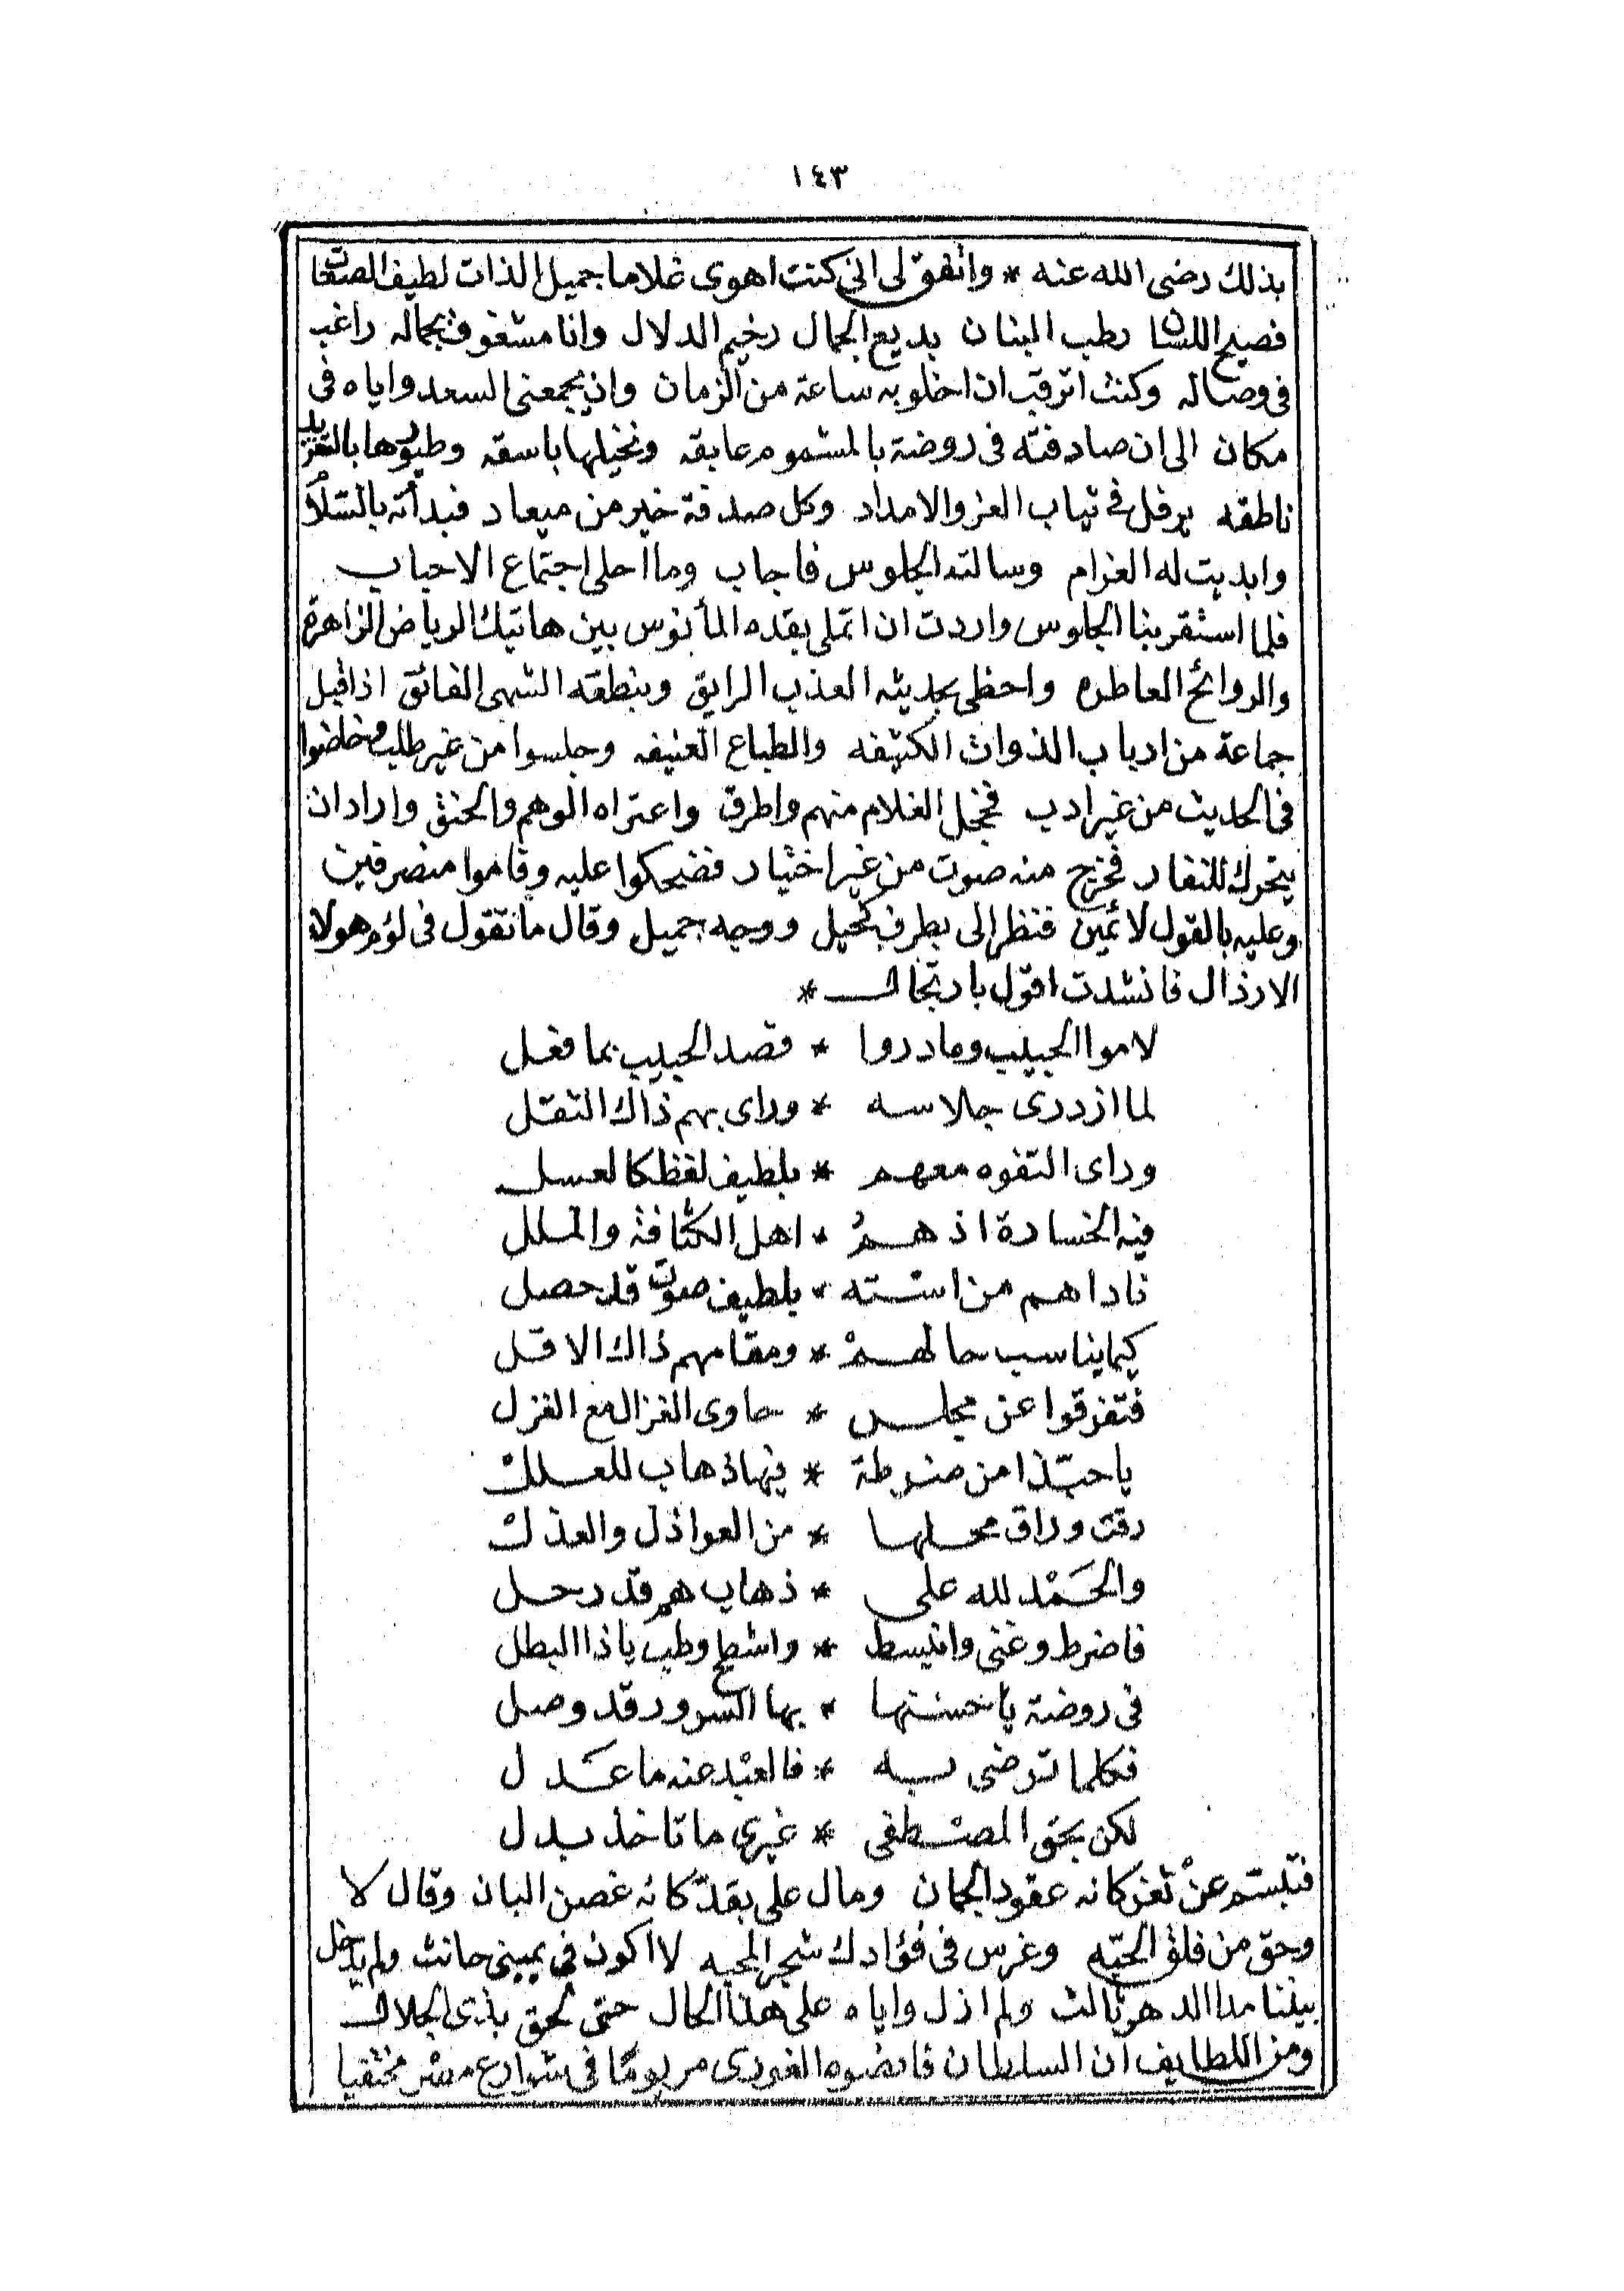 ١٤٣
بذلك رضى الله عنه * واتفق لى انى كنت اهوى غلاما جميل الذات لطيف الصفات
فصيح اللسان رطب البنان بديع الجمال رخيم الدلال وانا مشغوف بجماله راغب
فى وصاله وكنت اترقب ان اخلو به ساعة من الزمان وان يجمعنى السعد واياه فى
مكان الى ان صادفته فى روضة بالمشموم عابقه ونخيلها باسقه وطيورها بالتغريد
ناطقه يرفل فى ثياب العز والامداد وكل صدفة خير من ميعاد فبدأته بالسلام
وابديت له الغرام وسالته الجلوس فاجاب وما احلى اجتماع الاحباب
فلما استقر بنا الجلوس واردت ان اتملى بقده المأنوس بين هاتيك الرياض الزاهرة
والروائح العاطره واحظى بحديثه العذب الرايق وبنطقه الشهى الفائق اذ اقبل
جماعة من ارباب الذوات الكثيفه والطباع العنيفه وجلسوا من غير طلب وخاضوا
فى الحديث من غير ادب فخجل الغلام منهم واطرق واعتراه الوهم والحنق واراد ان
يتحرك للنفار فخرج منه صوت من غير اختيار فضحكوا عليه وقاموا منصرفين
وعليه بالقول لائمين فنظر الى بطرف كحيل ووجه جميل وقال ما تقول فى لؤم هولاء
الارذال فانشدت اقول بارتجال *
لاموا الحبيب وما دروا * قصد الحبيب بما فعل
لما ازدرى جلاسه * وراى بهم ذاك الثقل
وراى التفوه معهم * بلطيف لفظ كالعسل
فيه الخسارة اذ همُ * اهل الكثافة والملل
ناداهم من استه * بلطيف صوت قد حصل
كيما يناسب حالهمْ * ومقامهم ذاك الاقل
فتفرقوا عن مجلس * حاوى الغزال مع الغزل
يا حبّذا من ضرطة * فيها ذهاب للعلل
رقت وراق محلها * من العواذل والعذل
والحَمْد لله على * ذهاب هم قد رحل
فاضرط وغنى وانبسط * واشطح وطب ياذا البطل
فى روضة يا حسنها * بها السرور قد وصل
فكلما ترضى به * فالعبْد عنه ما عَدل
لكن بحق المصْطفى * غيرى ما تاخذ بدل
فتبسّم عنْ ثغر كانه عقود الجمان ومال على بقدّ كانه غصن البان وقال لا
وحق من فلق الحبّه وغرس فى فؤادك شجر المحبه لا اكون فى يمينى حانث ولم يدخل
بيننا مدا الدهر ثالث ولم ازل واياه على هذا الحال حتى لحق بذى الجلال
ومن اللطايف ان السلطان قانصوه الغورى مر يومًا فى شوارع مصر مختفيا